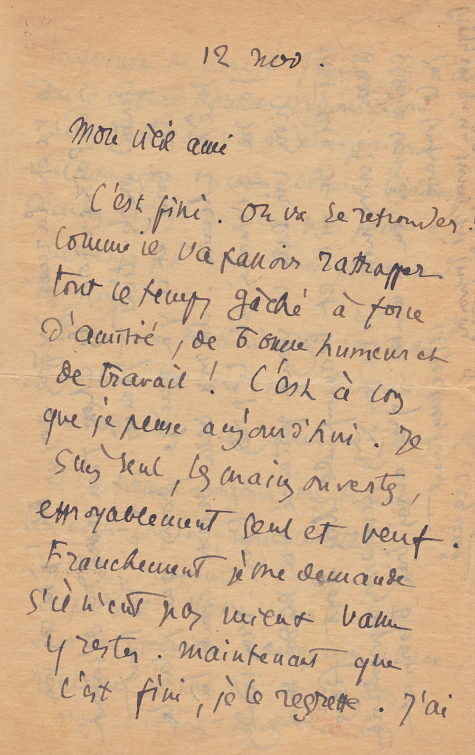 12 nov.
Mon vieil ami
C'est fini. On va se retrouver.
Comme il va falloir rattrapper
tout le temps gâché à force
d'amitié, de bonne humeur et
de travail ! C'est à vous
que je pense aujourd'hui. Je
suis seul, les mains ouvertes,
effroyablement seul et veuf.
Franchement je me demande
s'il n'eut pas mieux valu
y rester. Maintenant que
c'est fini, je le regrette. J'ai